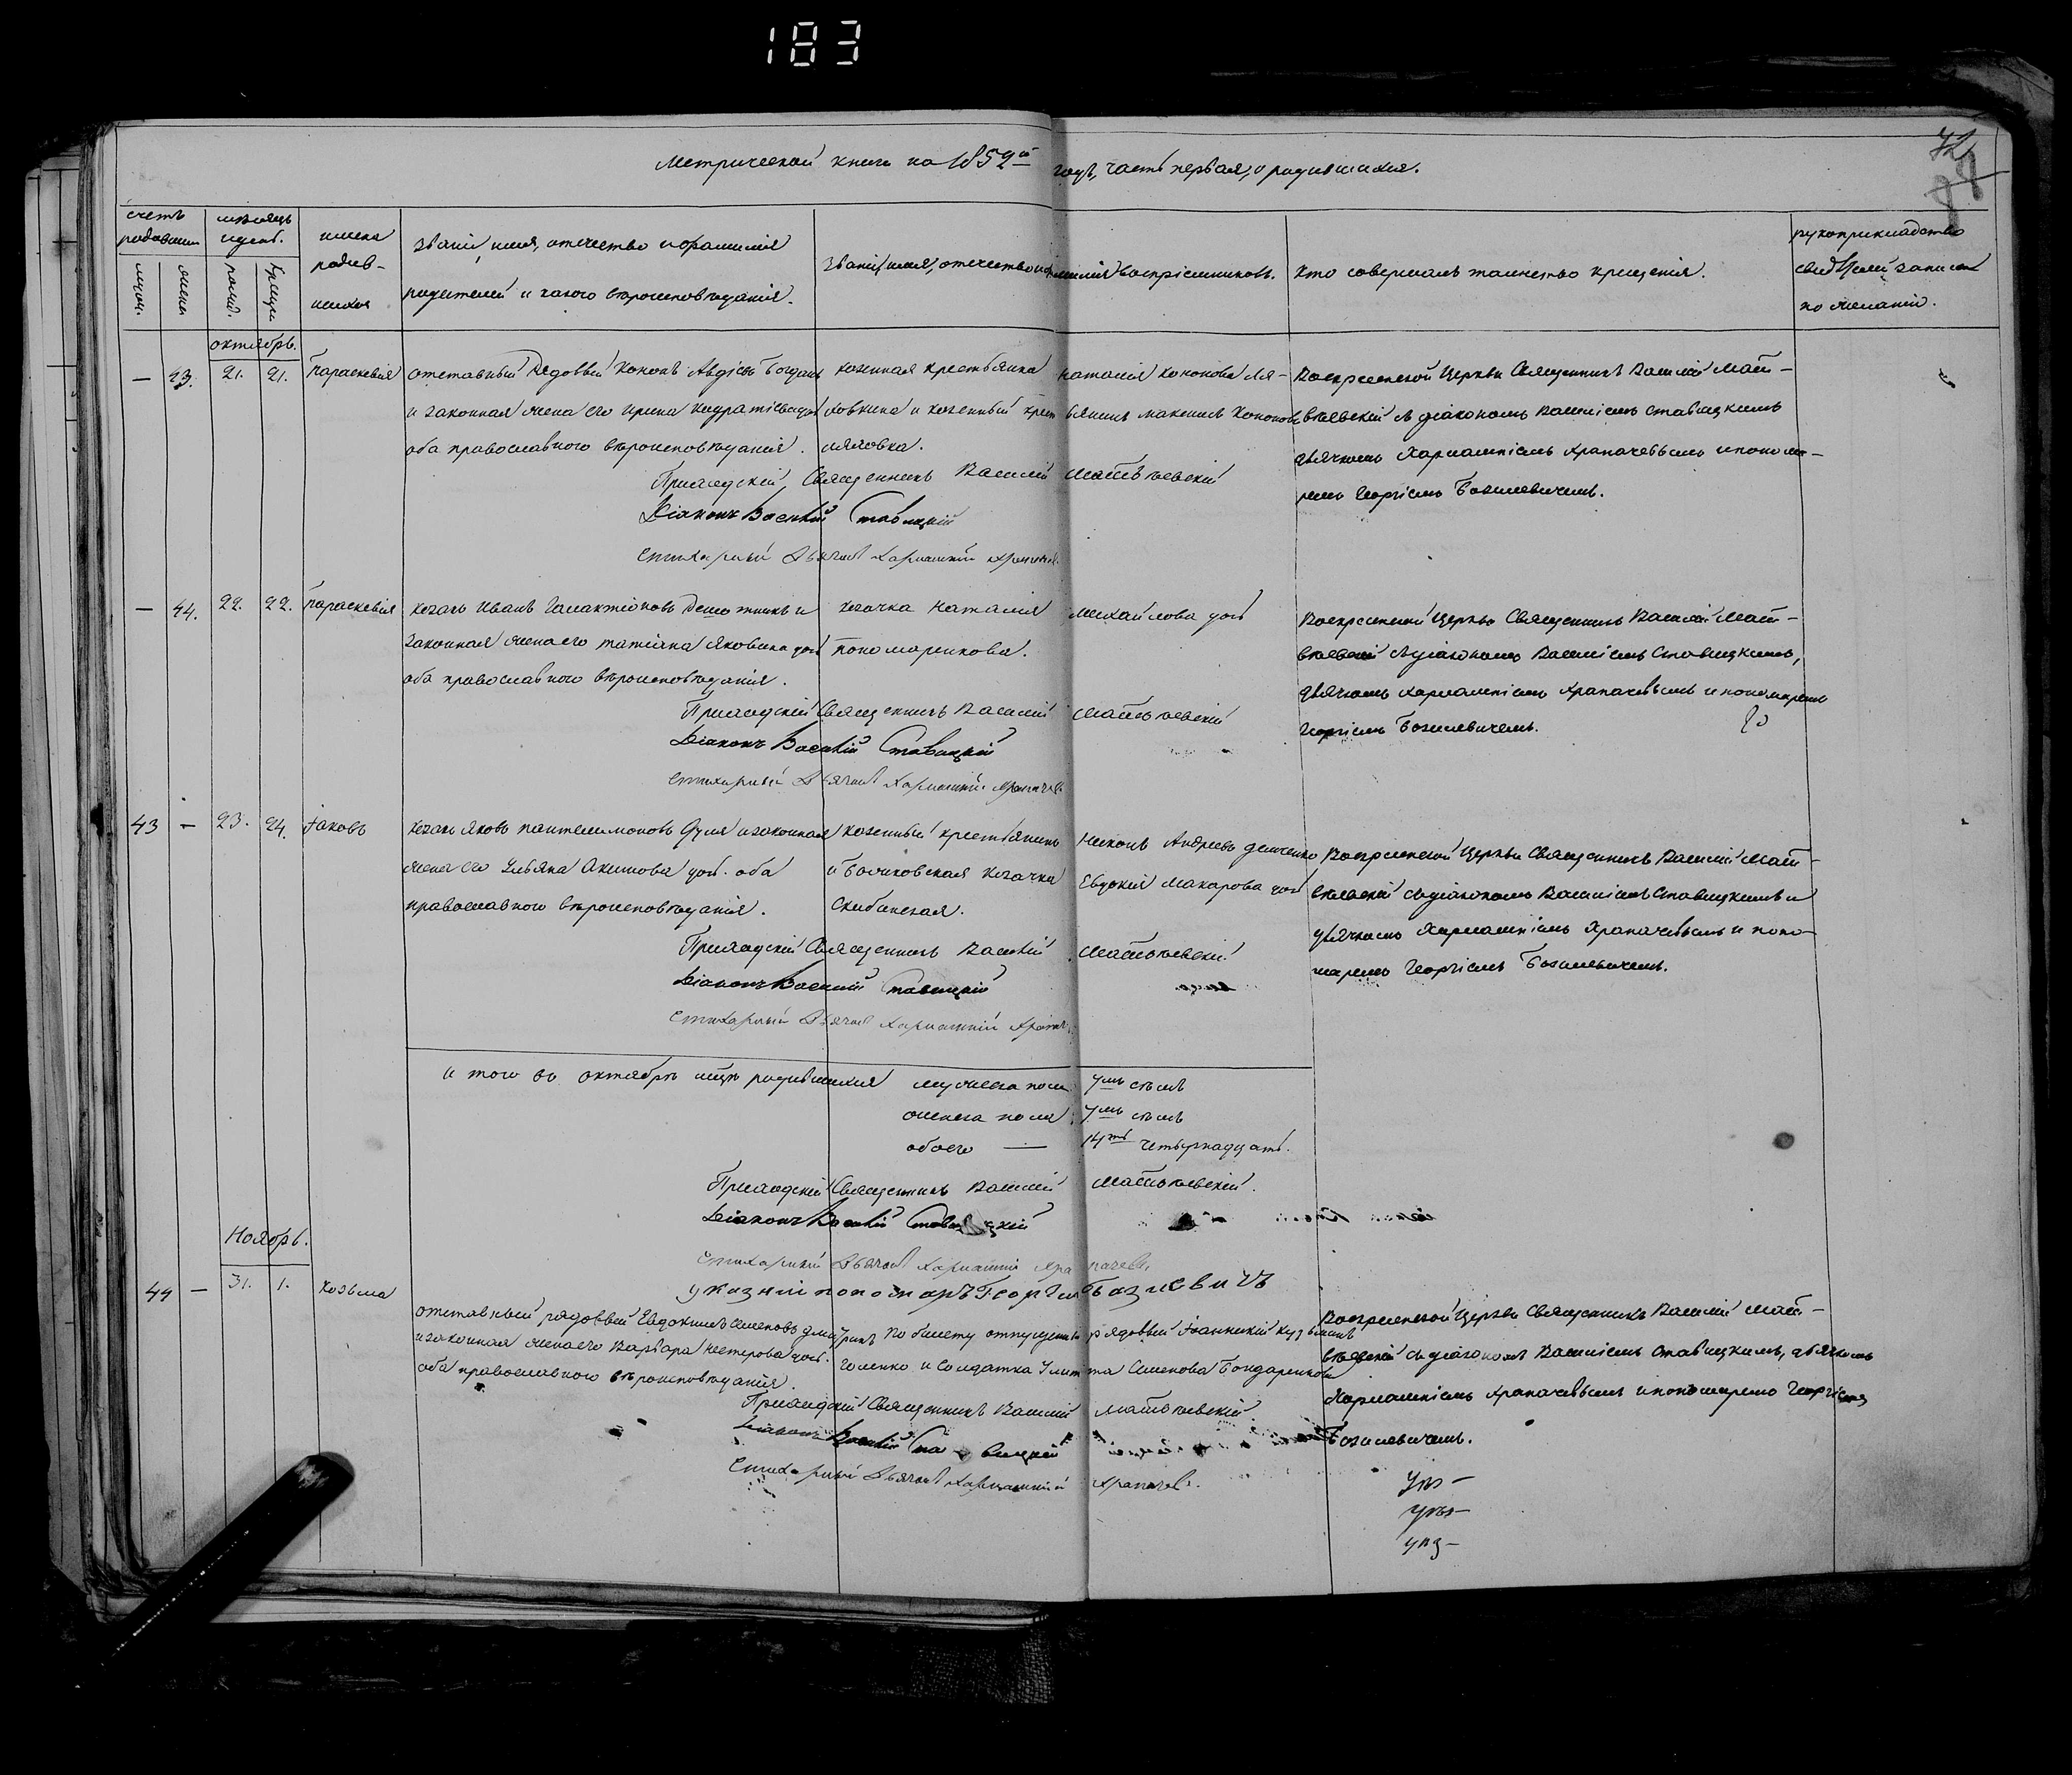 183
72
Метрической книги на 1852й годъ, часть первая, о родившихся.
счетъ родившихся
мѣсяцъ и день.
имена родив-шихся
званіе, имя, отчество и фамилія родителей и какого вѣроисповѣданія.
Званіе, имя, отчество и фамилія воспріемниковъ.
Кто совершалъ таинство крещенія.
рукоприкладство свидѣтелей записи по желанію.
мужс. женс. рожд. крещен.
октябрь.
— 43. 21. 21. Параскевія
отставный Рядовый Кононъ Авдіевъ Богдан
и законная жена его Ирина Кидратіева дочь
оба православнаго вѣроисповѣданія.
козенная крестьянка Наталія Кононова Ля-
ховкина и козенный крестьянинъ Максимъ Кононовъ
Ляховка.
Воскресенской Церкви Священникъ Василій Мат-
вѣевскій съ діакономъ Василіемъ Ставицкимъ
дьячкомъ Харлампіемъ Храпачевымъ и понома-
ремъ Георгіемъ Базилевичемъ.
Приходскій Священникъ Василій Матвѣевскій
Діаконъ Василій Ставицкій
Стихарный Дьячокъ Харлампій Храпачевъ
— 44. 22. 22. Параскевія
козакъ Иванъ Галактіоновъ и
законная жена его Татіяна Яковлева дочь
оба православнаго вѣроисповѣданія.
козачка Наталія Михайлова дочь
Пономаренкова.
Воскресенской Церкви Священникъ Василій Мат-
вѣевскій съ діакономъ Василіемъ Ставицкимъ,
дьячкомъ Харлампіемъ Храпачевымъ и пономаремъ
Георгіемъ Базилевичемъ.
Приходскій Священникъ Василій Матвѣевскій
Діаконъ Василій Ставицкій
Стихарный Дьячокъ Харлампій Храпачевъ
43 — 23. 24. Іаковъ
козакъ Яковъ Пантелимоновъ Дуля и законная
жена его Ульяна Акимова доч. оба
православнаго вѣроисповѣданія.
козенный крестьянинъ Никонъ Андреевъ Демченко
и козачка Евдокія Макарова дочь
Скибинская.
Воскресенской Церкви Священникъ Василій Мат-
вѣевскій съ діакономъ Василіемъ Ставицкимъ и
дьячкомъ Харлампіемъ Храпачевымъ и поно-
маремъ Георгіемъ Базилевичемъ.
Приходскій Священникъ Василій Матвѣевскій
Діаконъ Василій Ставицкій
Стихарный Дьячокъ Харлампій Храпачевъ
Итого въ октябрѣ мцѣ родившихся мужеска пола 7мь семь
женска пола 7мь семь
обоего — 14ть четырнадцать.
Приходскій Священникъ Василій Матвѣевскій.
Діаконъ Василій Ставицкій
Стихарный Дьячокъ Харлампій Храпачевъ
указній пономаръ Георгій Базилевичъ
Ноябрь.
44 — 31. 1. Козьма
отставный рядовый Евдокимъ Семеновъ
и законная жена его Варвара Нестерова доч.
оба православнаго вѣроисповѣданія.
по билету отпущенный рядовый Іоанникій
и Солдатка Улита Семенова Бондаренкова
Воскресенской Церкви Священникъ Василій Мат-
вѣевскій съ діакономъ Василіемъ Ставицкимъ, дьячкомъ
Харлампіемъ Храпачевымъ и пономаремъ Георгіемъ
Базилевичемъ.
Приходскій Священникъ Василій Матвѣевскій
Діаконъ Василій Ставицкій
Стихарный Дьячокъ Харлампій Храпачевъ.